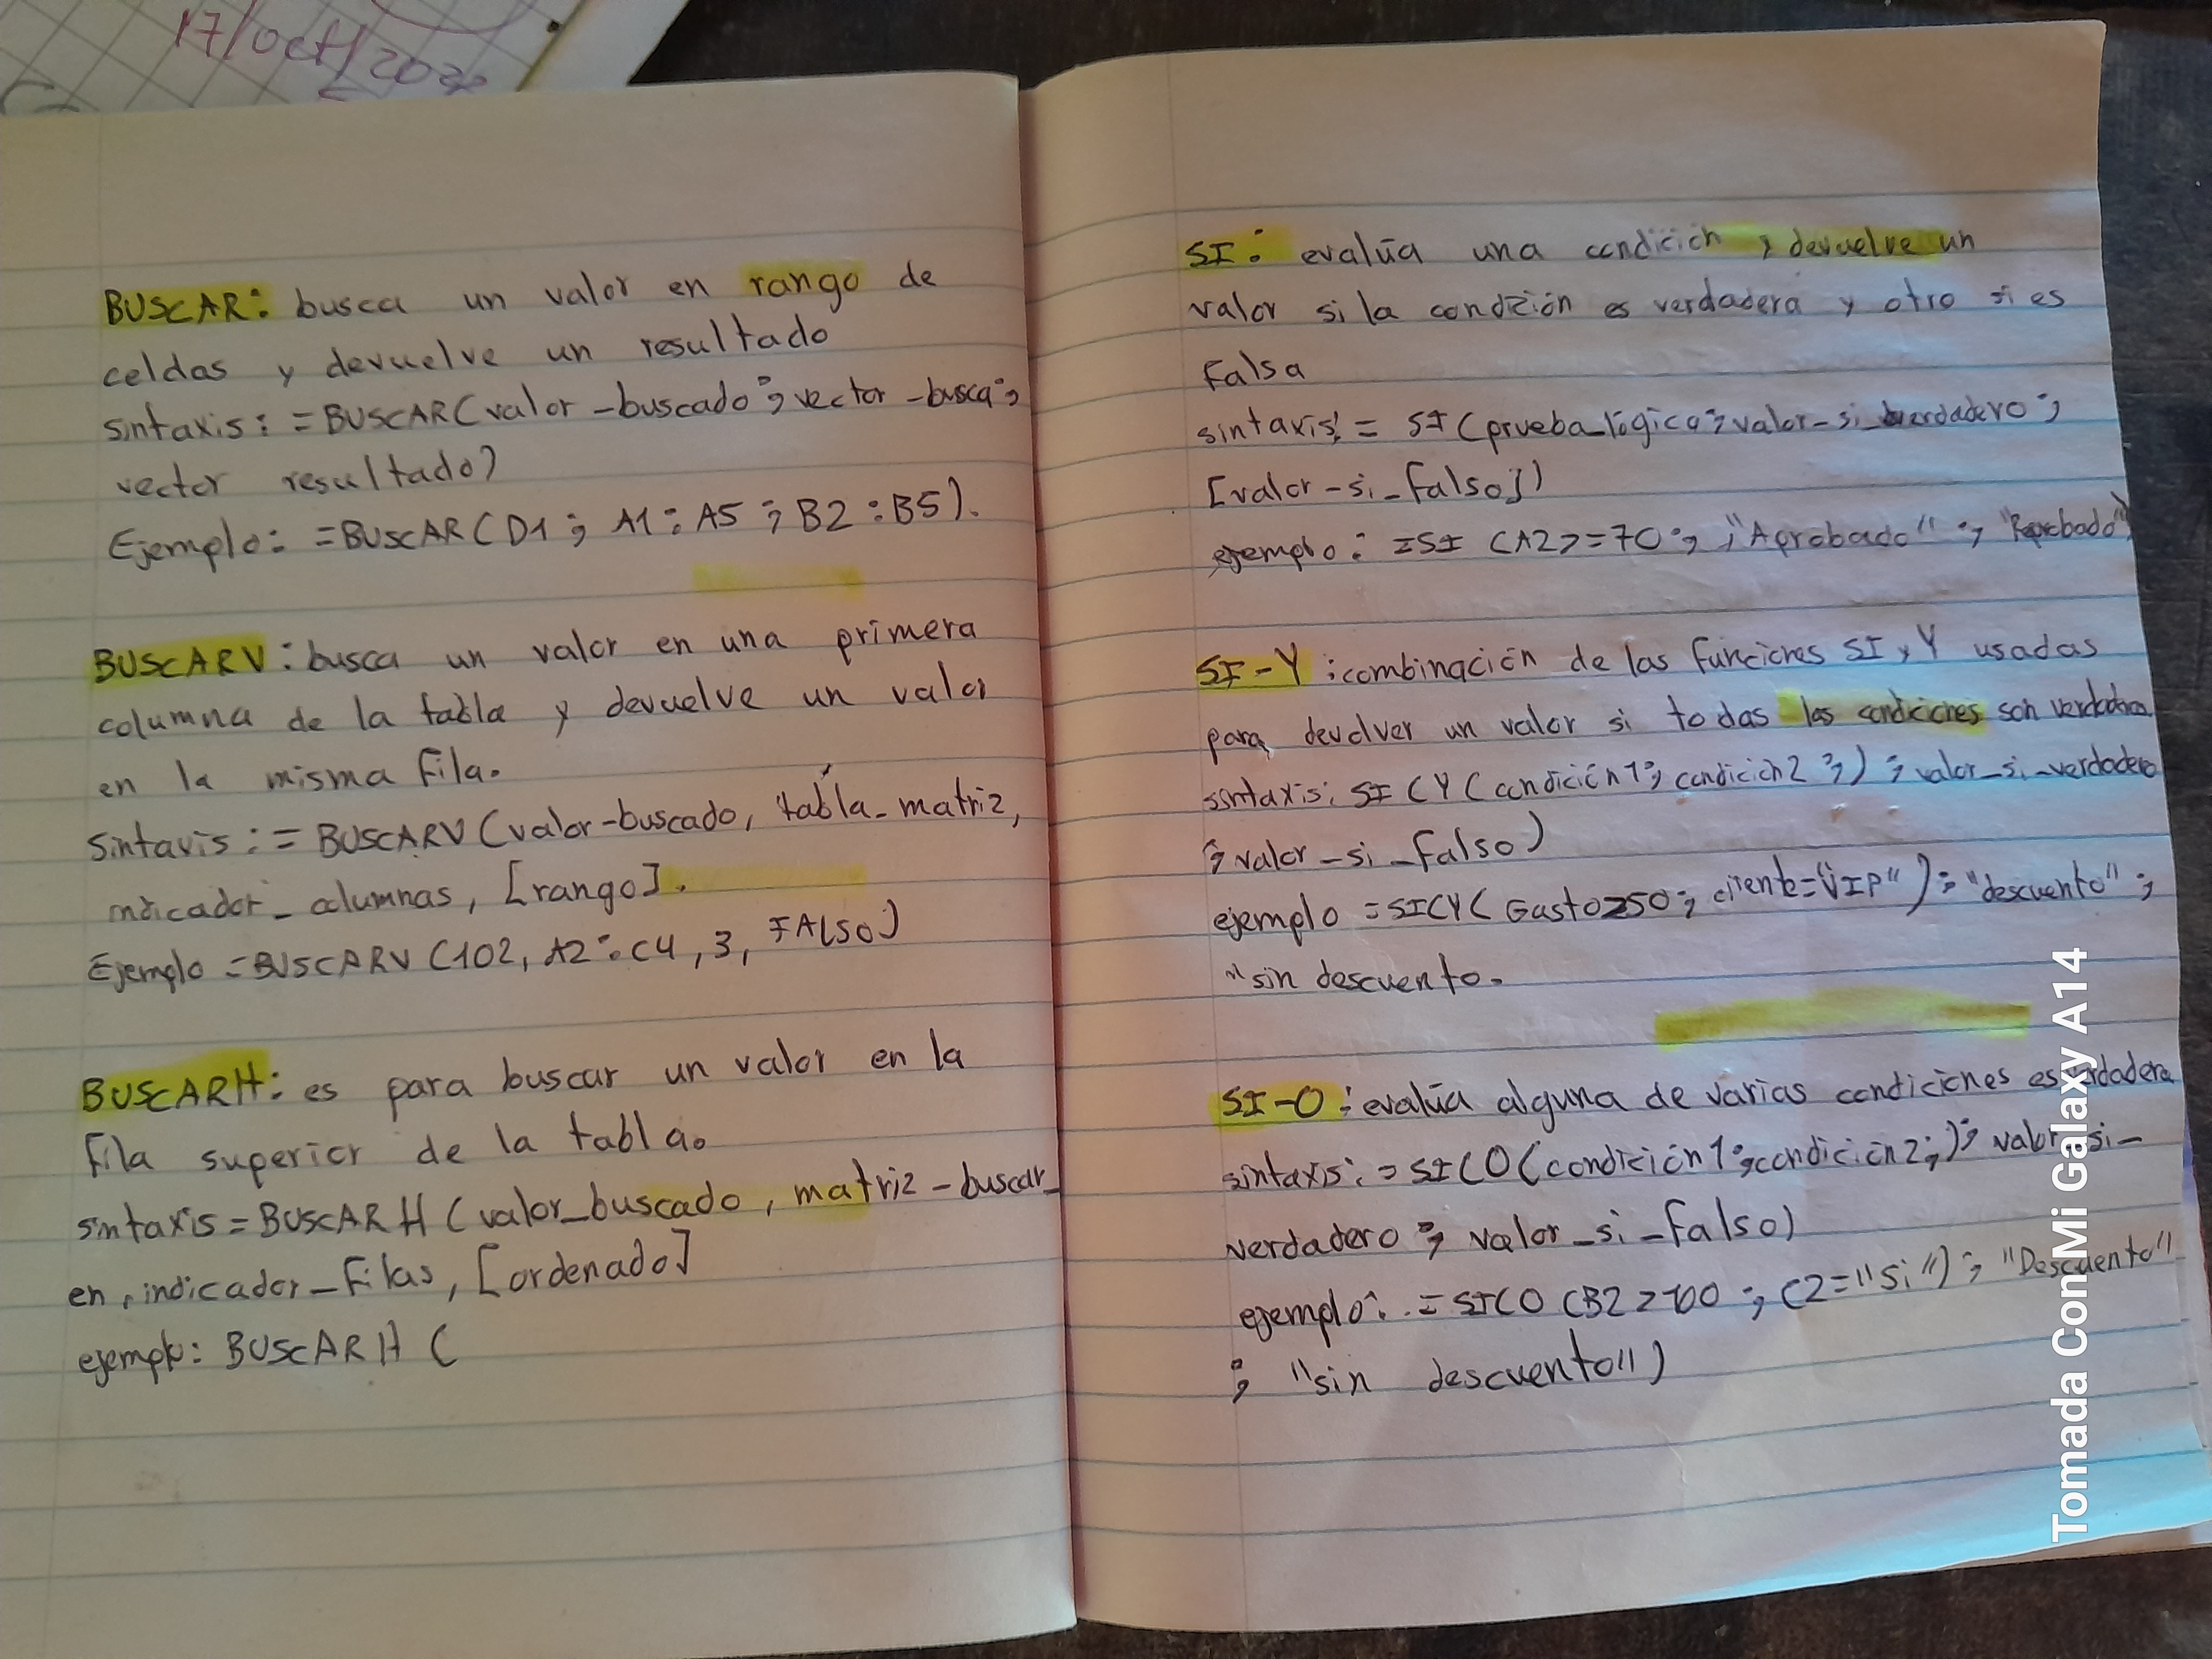 17/oct/202
BUSCAR: busca un valor en rango de
celdas y devuelve un resultado
sintaxis: =BUSCAR(valor-buscado; vector-busca;
vector resultado)
Ejemplo: =BUSCAR(D1; A1:A5; B2:B5).
BUSCARV: busca un valor en una primera
columna de la tabla y devuelve un valor
en la misma fila.
Sintaxis: = BUSCARV (valor-buscado, tabla_matriz,
indicador_columnas, [rango].
Ejemplo =BUSCARV (102, A2:C4, 3, FALSO)
BUSCARH: es para buscar un valor en la
fila superior de la tabla.
sintaxis = BUSCARH (valor_buscado, matriz-buscar_
en, indicador_filas, [ordenado]
ejemplo: BUSCARH (
SI: evalúa una condición y devuelve un
valor si la condición es verdadera y otro si es
falsa
sintaxis: = SI (prueba_lógica; valor_si_verdadero;
[valor-si_falso])
ejemplo: =SI (A2>=70; ;"Aprobado"; "Reprobado")
SI-Y: combinación de las funciones SI y Y usadas
para devolver un valor si todas las condiciones son verdaderas
sintaxis: SI (Y(condición1; condición2;); valor_si_verdadero
; valor_si_falso)
ejemplo =SI(Y( Gasto≥50; cliente="VIP"); "descuento";
"sin descuento.
SI-O: evalúa alguna de varias condiciones es verdadera
sintaxis: = SI(O(condición1; condición2;); valor_si-
verdadero; valor_si_falso)
ejemplo: = SI(O (B2>100; C2="si"); "Descuento"
; "sin descuento")
Tomada ConMi Galaxy A14